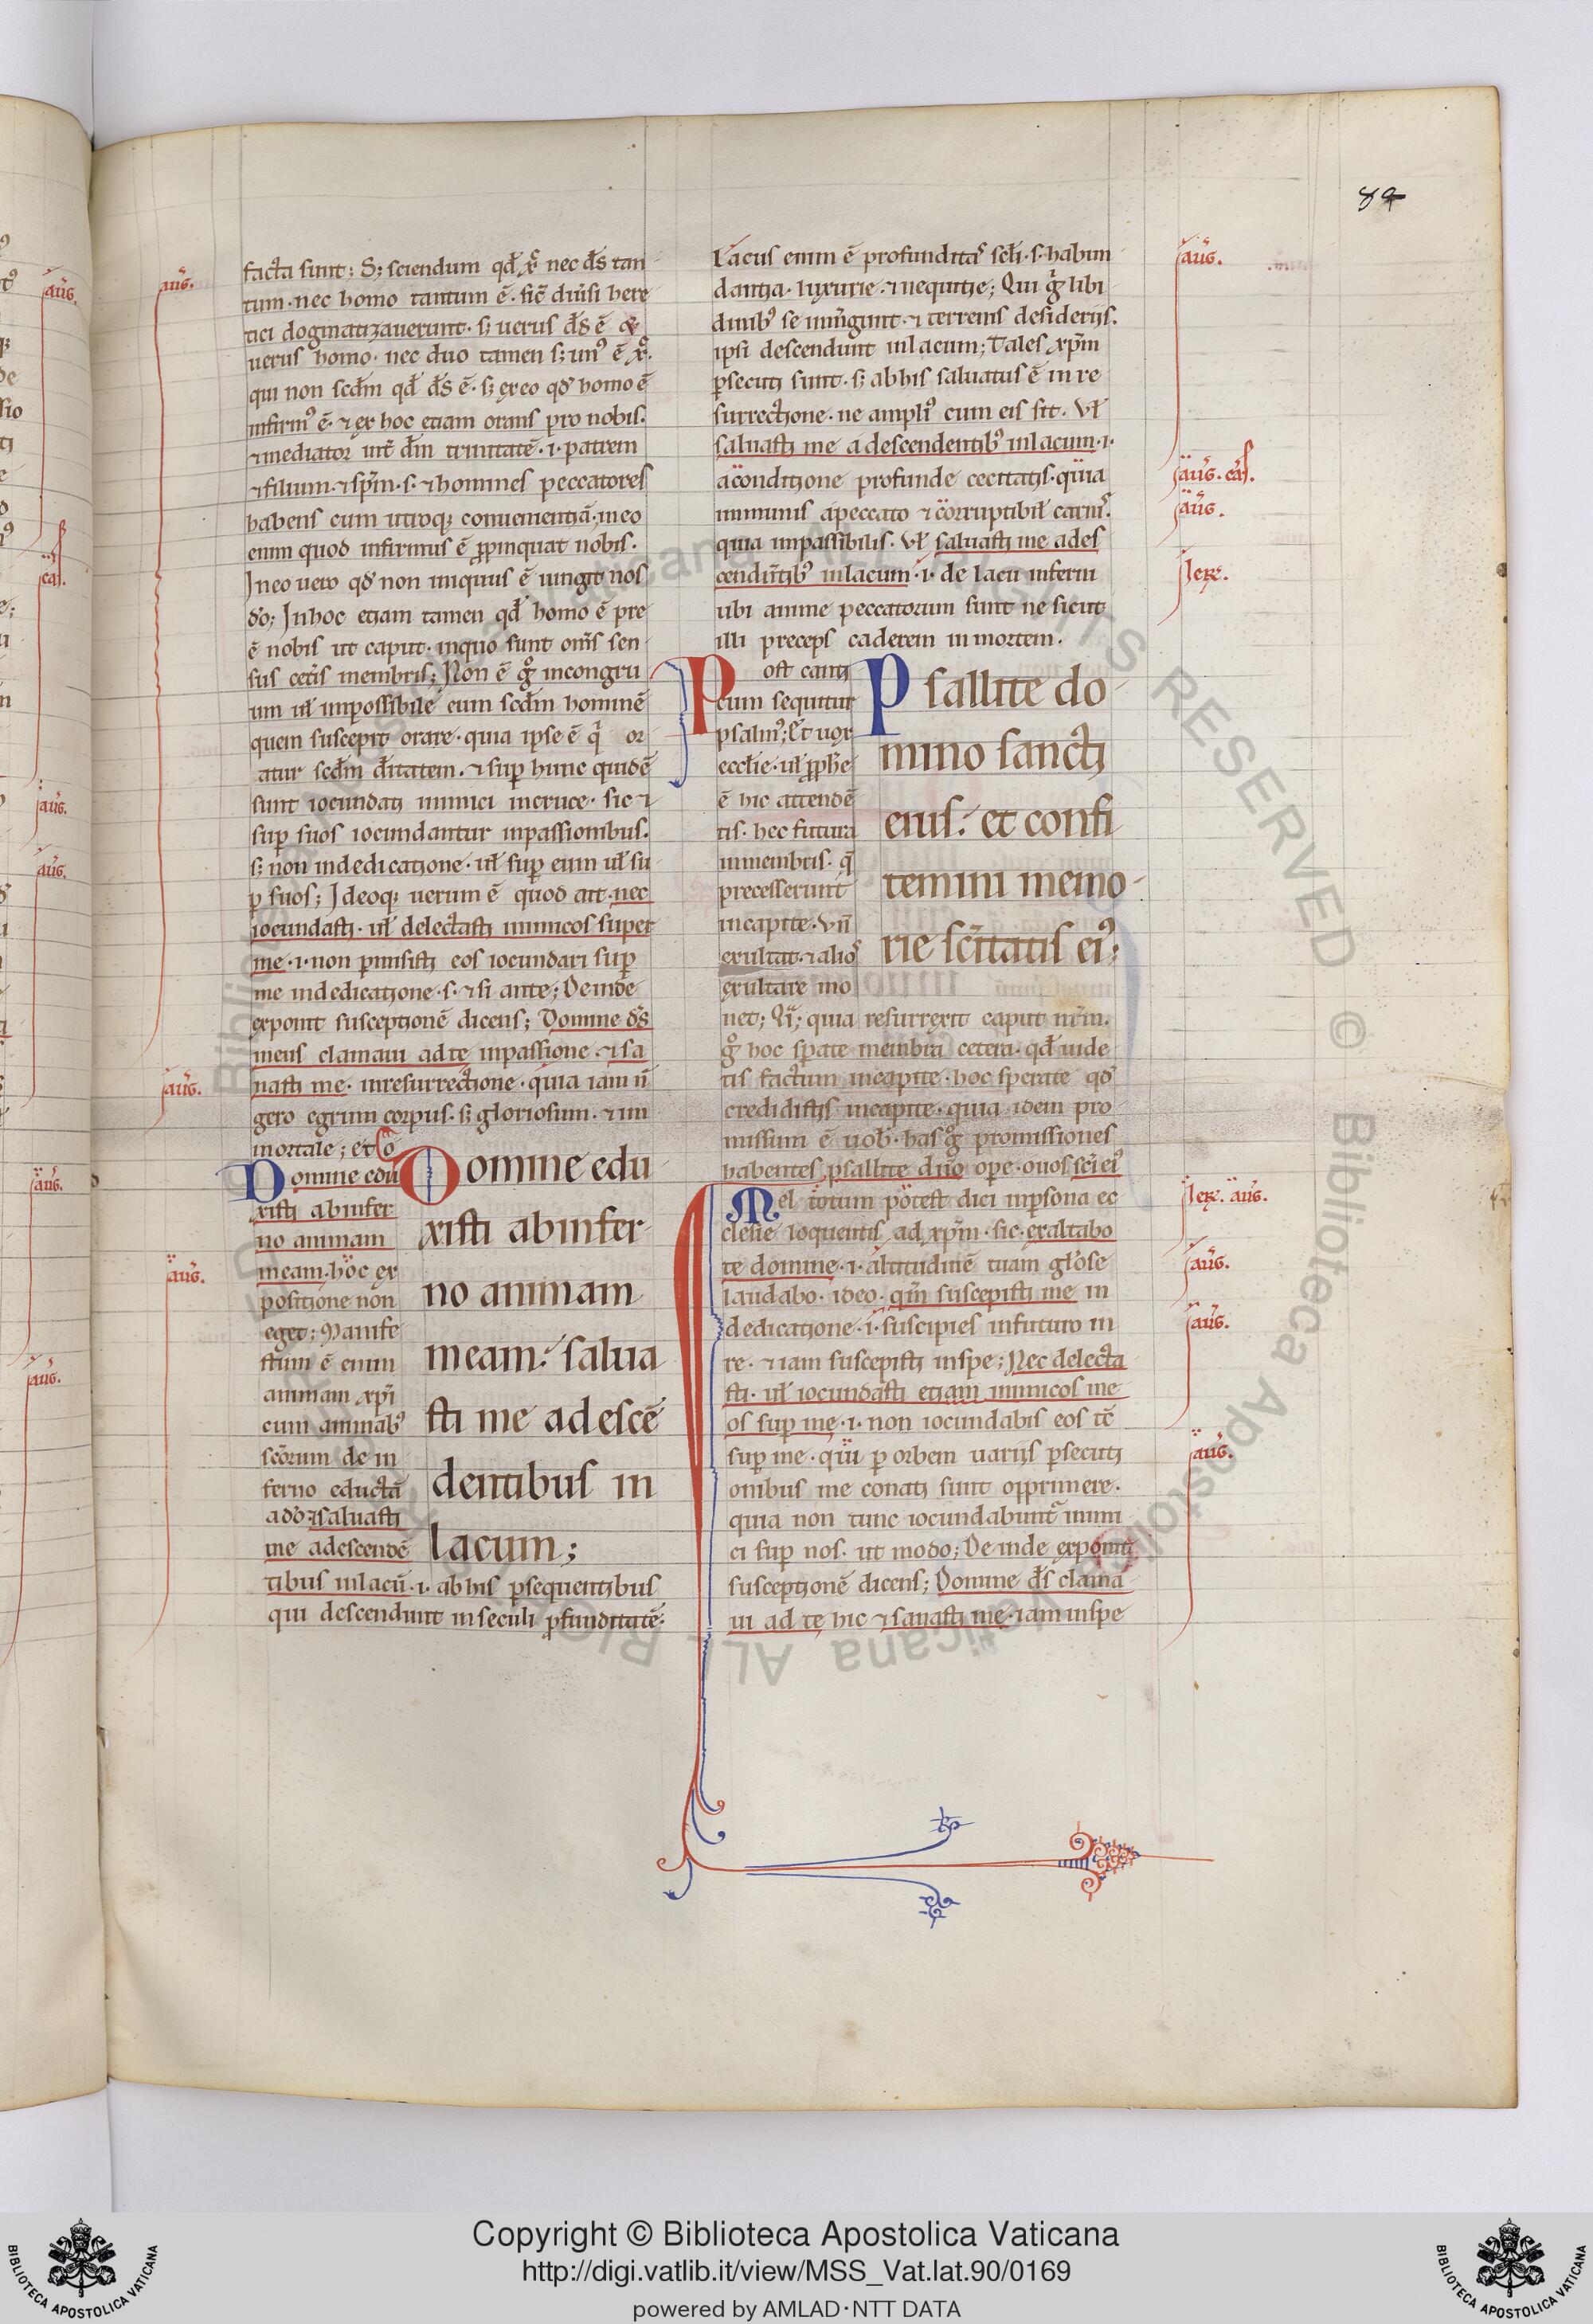 84
aug̃.
facta sunt; S; sciendum qđ xp̄c nec đs tan
tum · nec homo tantum ē · sic̄ diũsi here
tici dogmatizauerunt · s; uerus đs ē &
uerus homo · nec duo tamen s; unꝰ ē xp̄c ·
qui non scđm qđ đs ē · s; ex eo qđ homo ē
infirmꝰ ē · ⁊ ex hoc etiam orans pro nobis ·
⁊ mediator int̃ đm trinitatē · i · patrem
⁊ filium · ⁊ sp̄m · s · ⁊ homines peccatores
habens cum utroq; conuenientiā · in eo
enim quod infirmus ē ꝓpinquat nobis ·
In eo uero qđ non iniquus ē iungit nos
đo; In hoc etiam tamen qđ homo ē pre
ē nobis ut caput · in quo sunt om̄s sen
sus cet̃is membris; Non ē gͦ incongru
um ut̄ impossibile eum scđm hominē
quem suscepit orare · quia ipse ē qͥ or
atur scđm đitatem · ⁊ suꝑ hunc quidē
sunt iocundati inimici in cruce · sic ⁊
suꝑ suos iocundantur in passionibus ·
s; non in dedicatione · ut̄ suꝑ eum ut̄ su
ꝑ suos; Ideoq; uerum ē quod ait · nec
iocundasti · ut̄ delectasti inimicos super
me · i · non ꝑmisisti eos iocundari suꝑ
me in dedicatione · s · ⁊ si ante; Deinde
exponit susceptionē dicens; Domine đs
meus clamaui ad te in passione · ⁊ sa
aug̃.
nasti me · in resurrectione · quia iam n̄
gero egrum corpus · s; gloriosum · ⁊ im
mortale; et co
Domine edu
xisti ab infer
no animam
aug̃.
meam · hoc ex
positione non
eget; Manife
stum ē enim
animam xp̄i
cum animabꝰ
sc̄orum de in
ferno eductā
a đo; ⁊ saluasti
me a descendē
tibus in lacū · i · ab his ꝑsequentibus
qui descendunt in seculi ꝓfunditatē ·
Domine edu
xisti ab infer
no animam
meam: salua
sti me a descē
dentibus in
lacum;
aug̃.
Lacus enim ē profunditas sc̄li · s · habun
dantia · luxurie · ⁊ nequitie; Qui gͥ libi
dinibꝰ se iniungunt · ⁊ terrenis desiderijs ·
ipsi descendunt in lacum; Tales xp̄m
ꝑsecuti sunt · s; ab his saluatus ē in re
surrectione · ne ampliꝰ cum eis sit · Vt̄
saluasti me a descendentibꝰ in lacum · i ·
aug̃. cas̄.
a conditione profunde cecitatis · quia
aug̃.
immunis a peccato ⁊ corruptibil̄ carnis ·
quia impassibilis · Vt̄ saluasti me a des
Ier̃.
cendentibꝰ in lacum · i · de lacu inferni
ubi anime peccatorum sunt ne sicut
illi preceps caderem in mortem ·
Post canti
cum sequitur
psalmꝰ; Et uox
eccl̄ie · ut̄ ꝓph̄e
ē hic attendē
tis · hec futura
in membris · q̄
precesserunt
in capite · Vn̄
exultat · ⁊ alios
exultare mo
net; Qͣ; quia resurrexit caput nr̄m ·
gͦ hoc sperate membra cetera · qđ uide
tis factum in capite · hoc sperate qđ
credidistis in capite · quia idem pro
missum ē uob̄ · has gͦ promissiones
habentes psallite dn̄o ope · o uos sc̄i eiꝰ
Psallite do
mino sancti
eius: et confi
temini memo
rie sc̄itatis eiꝰ;
Ier̃. aug̃.
Vel totum potest dici in ꝑsona ec
clesie loquentis ad xp̄m · sic · exaltabo
aug̃.
te domine · i · altitudinē tuam glōse
laudabo · ideo · qm̄ suscepisti me in
aug̃.
dedicatione · i · suscipies in futuro in
re · ⁊ iam suscepisti in spe; Nec delecta
sti · ut̄ iocundasti etiam inimicos me
os suꝑ me · i · non iocundabis eos tc̄
aug̃.
suꝑ me · qui ꝑ orbem uarijs ꝑsecuti
onibus me conati sunt opprimere ·
quia non tunc iocundabunt̃ inimi
ci suꝑ nos · ut modo; Deinde exponit
susceptionē dicens; Domine đs clama
ui ad te hic ⁊ sanasti me · iam in spe
aug̃.
cas̄.
aug̃.
aug̃.
aug̃.
aug̃.
Copyright © Biblioteca Apostolica Vaticana
http://digi.vatlib.it/view/MSS_Vat.lat.90/0169
powered by AMLAD·NTT DATA
BIBLIOTECA APOSTOLICA VATICANA
BIBLIOTECA APOSTOLICA VATICANA